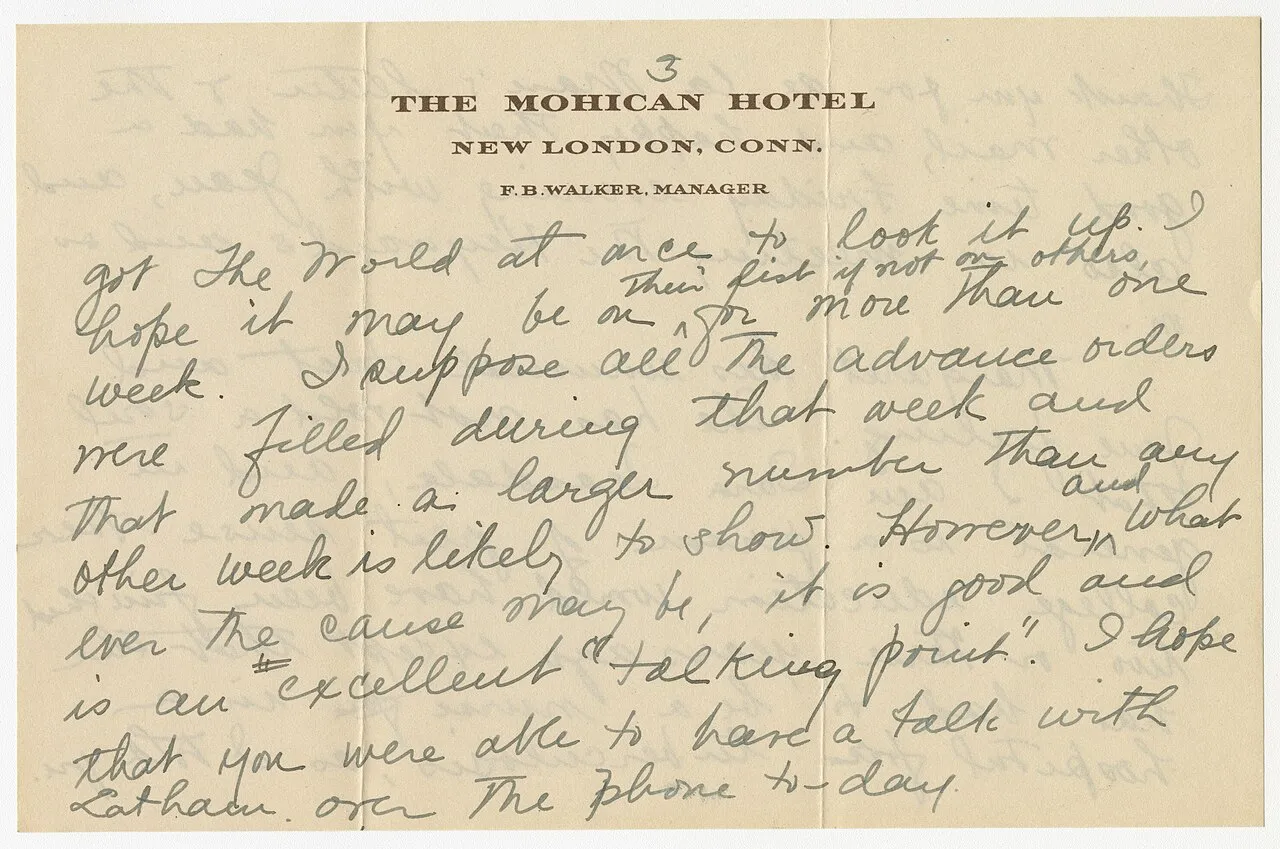 3
THE MOHICAN HOTEL
NEW LONDON, CONN.
F. B. WALKER, MANAGER
got The World at once to look it up. I
hope it may be on ^ their list if not on others, for more than one
week. I suppose all the advance orders
were filled during that week and
that made a larger number than any
other week is likely to show. However, ^ and what
ever the cause may be, it is good and
is an excellent "talking point". I hope
that you were able to have a talk with
Latham over the phone to-day.